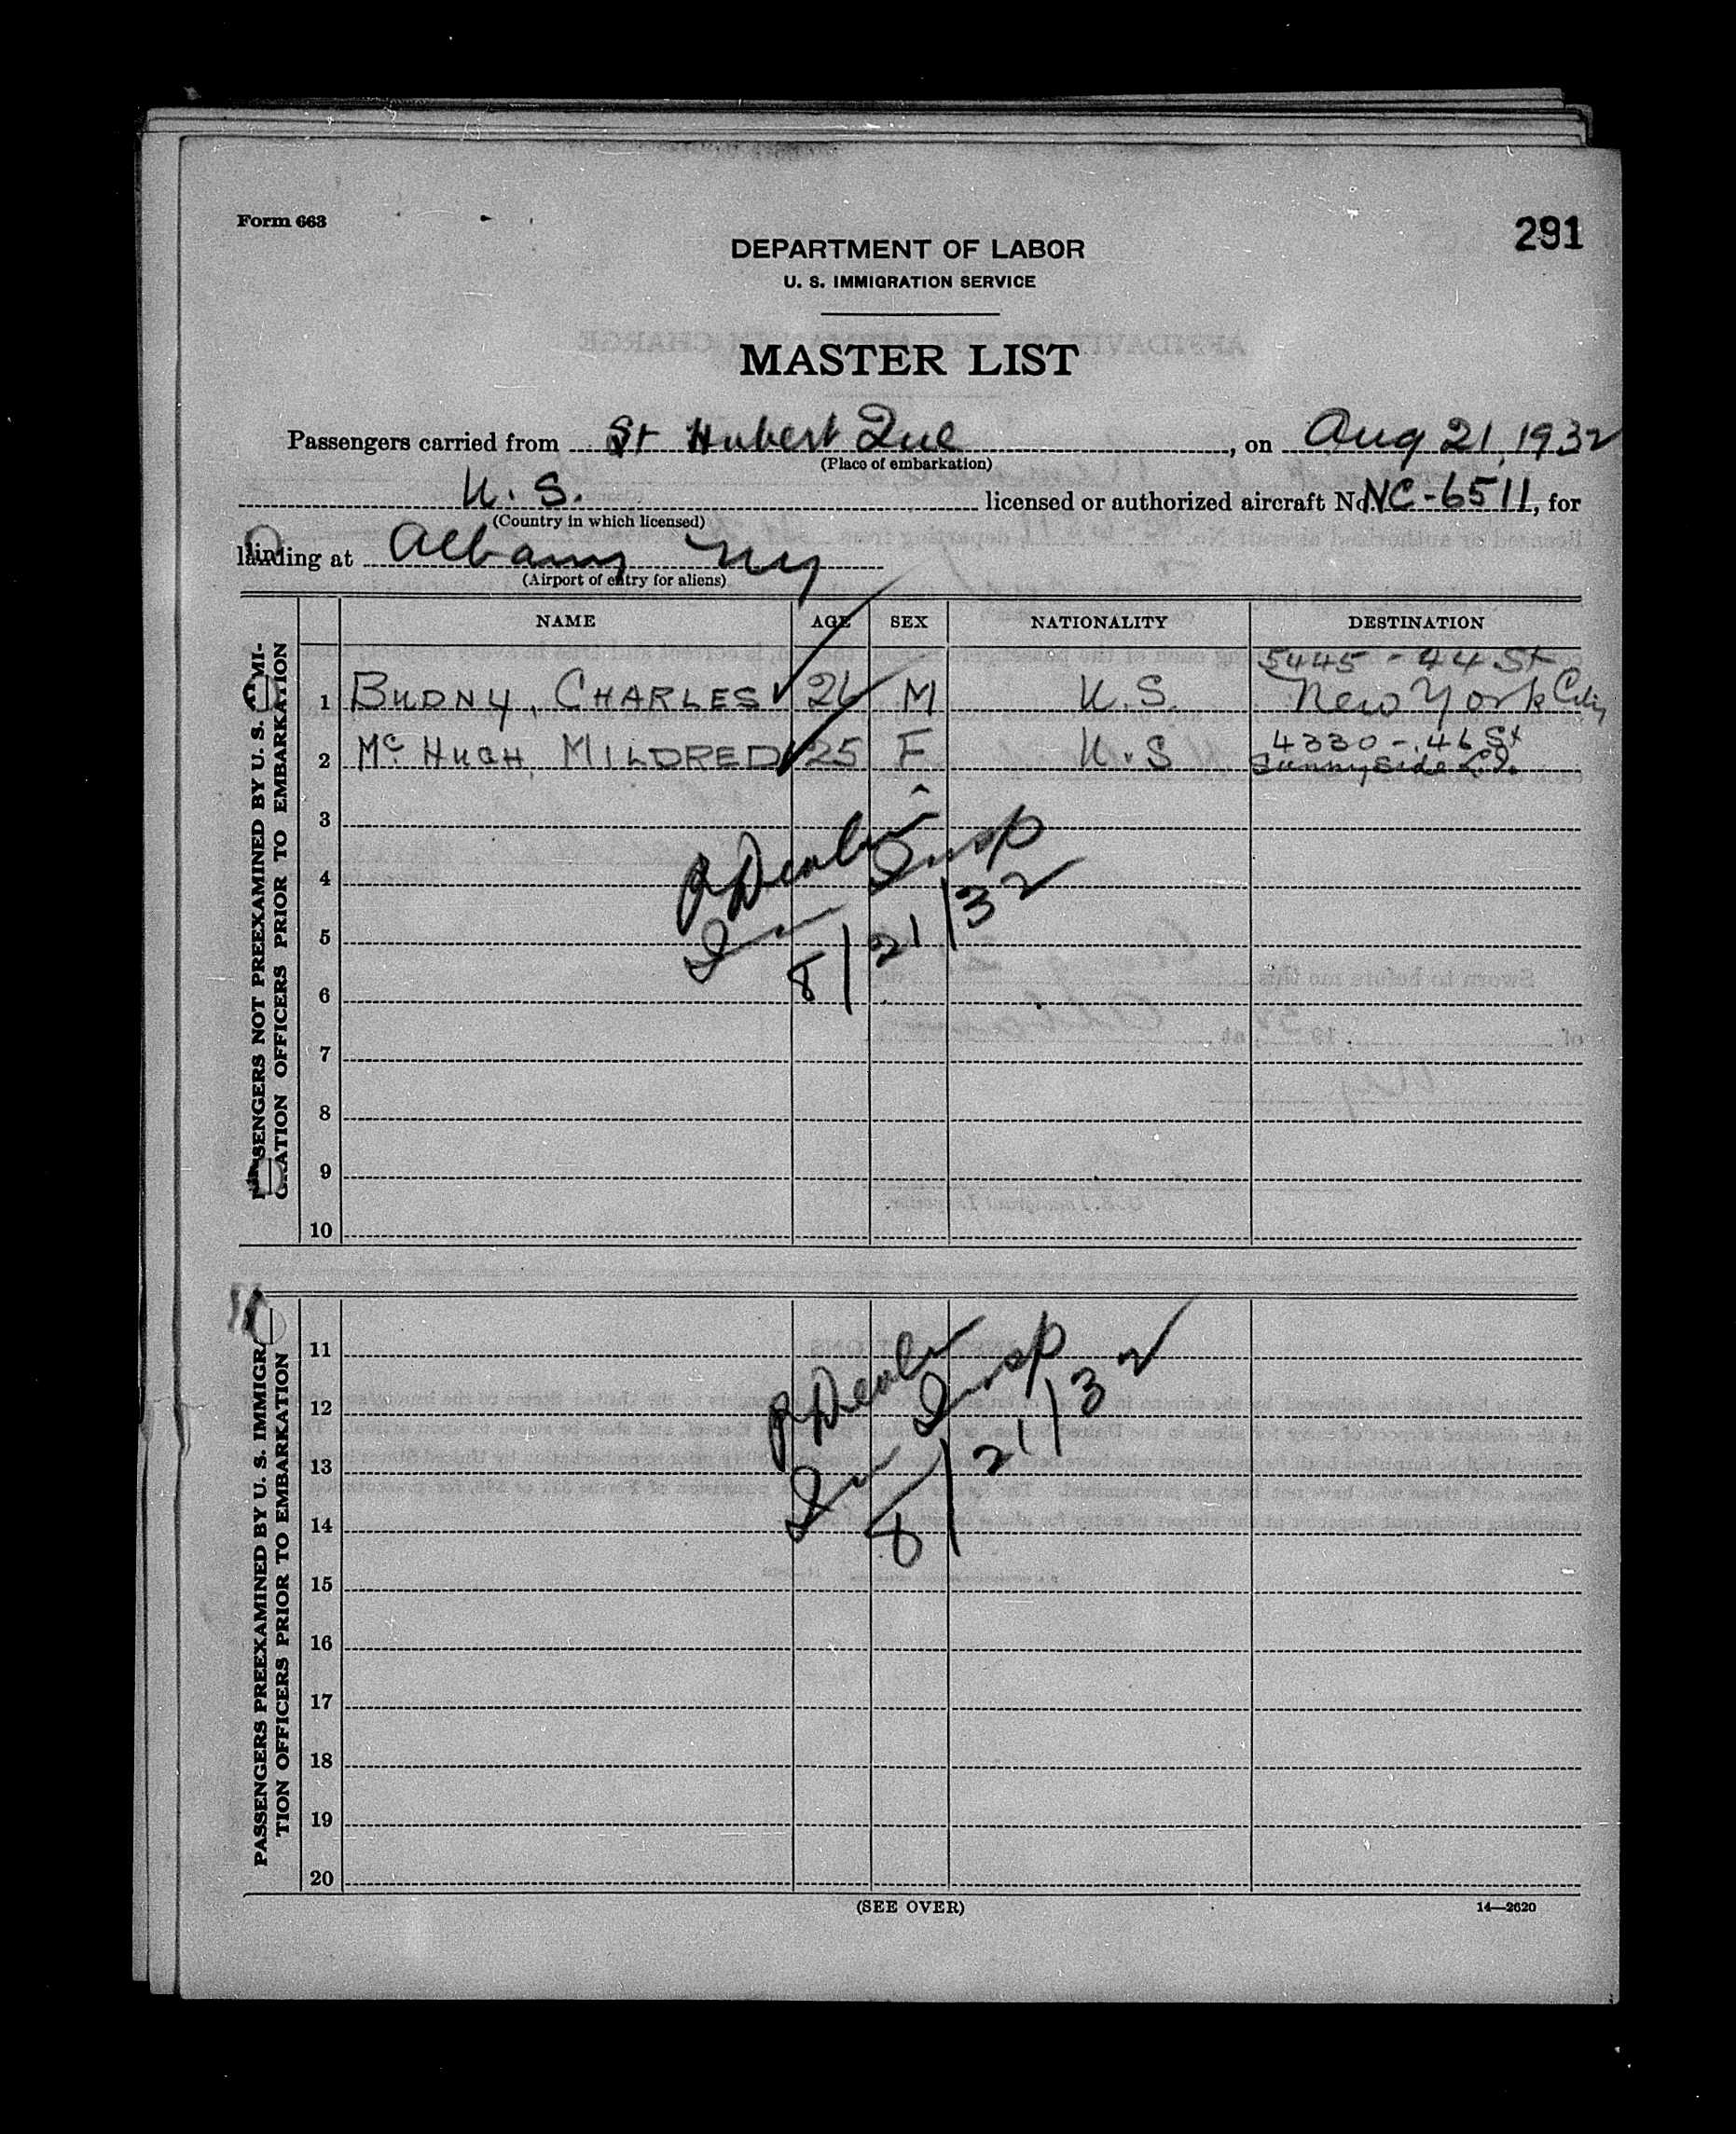 Form 663
291
DEPARTMENT OF LABOR
U. S. IMMIGRATION SERVICE
MASTER LIST
Passengers carried from St Hubert Que, on Aug 21, 1932
(Place of embarkation)
U. S. licensed or authorized aircraft No. NC-6511, for
(Country in which licensed)
landing at Albany Ny
(Airport of entry for aliens)
NAME AGE SEX NATIONALITY DESTINATION
5445 - 44 St
1 BUDNY, CHARLES 26 M U.S. New York City
4330 - 46 St
2 Mc HUGH, MILDRED 25 F U.S Sunnyside L.I.
3
4
Insp
5
8/21/32
6
7
8
9
10
PASSENGERS NOT PREEXAMINED BY U. S. IMMI-
GRATION OFFICERS PRIOR TO EMBARKATION
11
12
Insp
13
8/21/32
14
15
16
17
18
19
20
PASSENGERS PREEXAMINED BY U. S. IMMIGRA-
TION OFFICERS PRIOR TO EMBARKATION
(SEE OVER)
14—2620